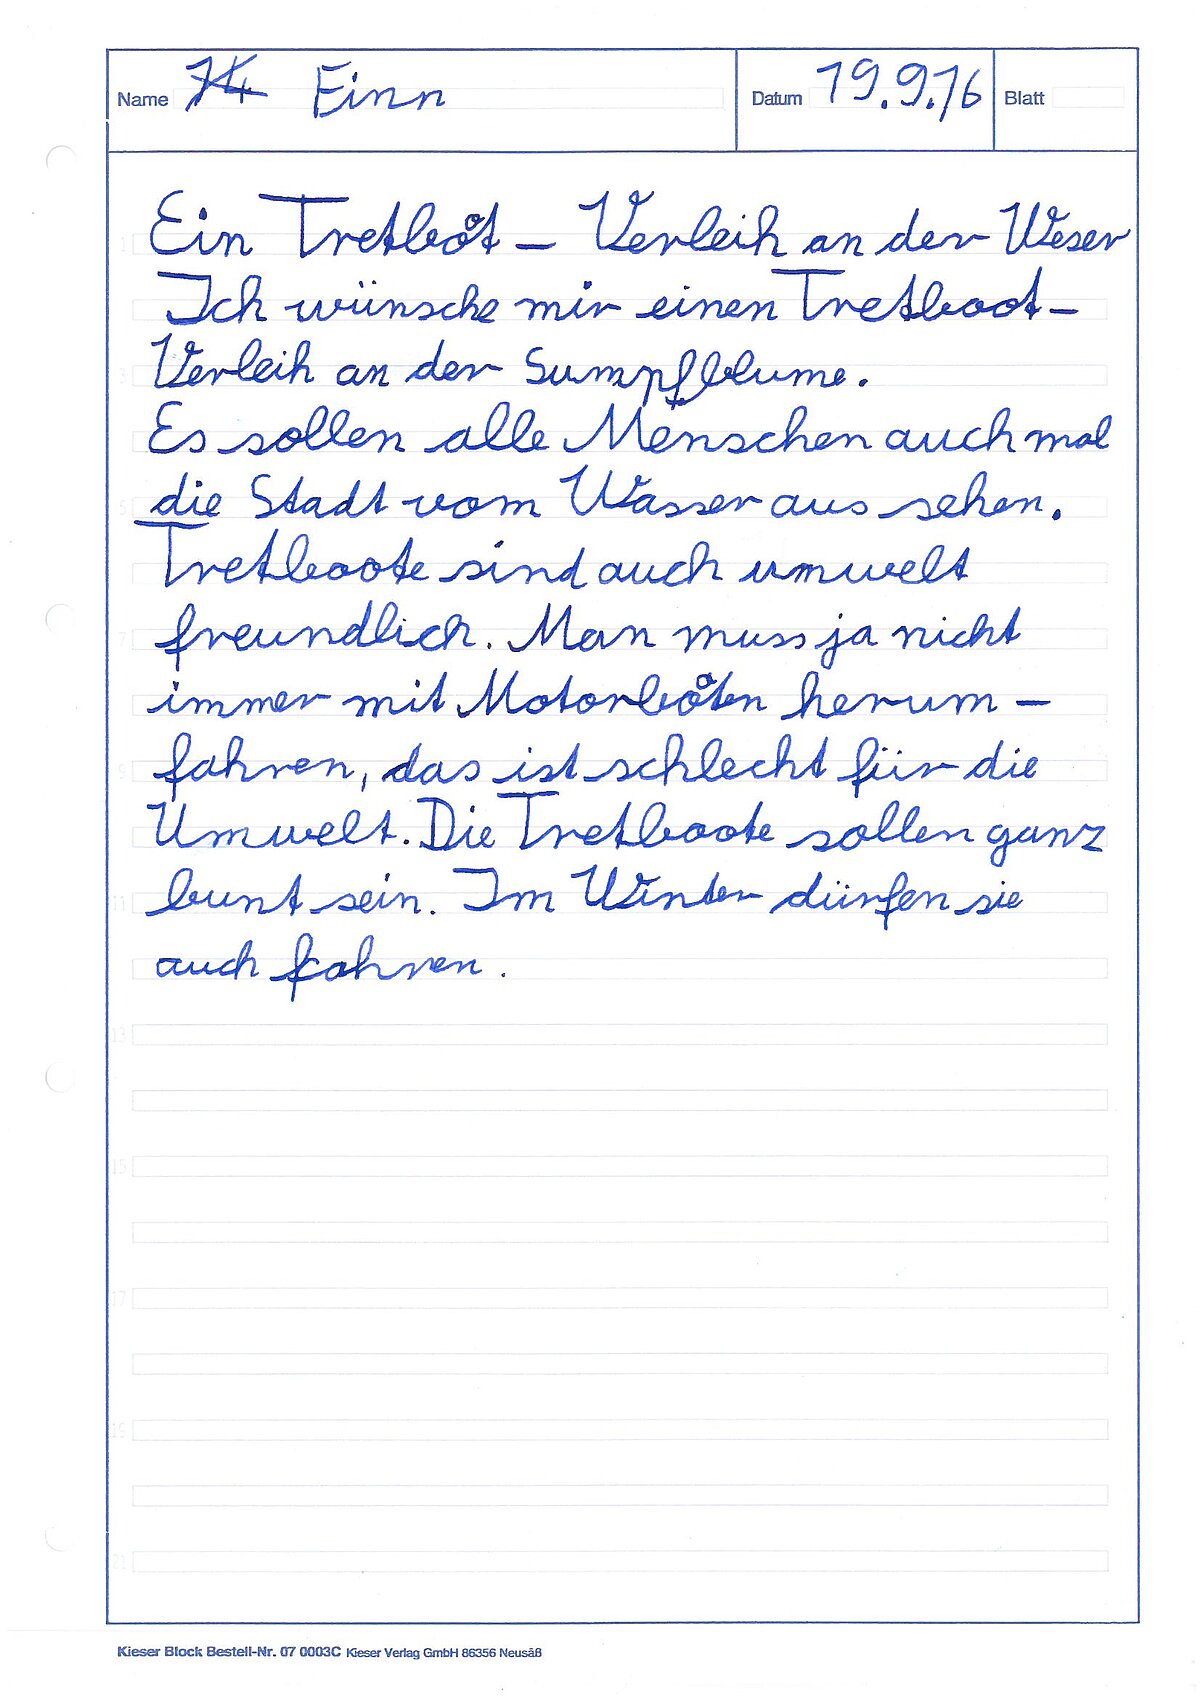 Name 74 Einn Datum 19.9.16 Blatt
Ein Tretboot – Verleih an der Weser
Ich wünsche mir einen Tretboot-
Verleih an der Sumpfblume.
Es sollen alle Menschen auch mal
die Stadt vom Wasser aus sehen.
Tretboote sind auch umwelt
freundlich. Man muss ja nicht
immer mit Motorbooten herum-
fahren, das ist schlecht für die
Umwelt. Die Tretboote sollen ganz
bunt sein. Im Winter dürfen sie
auch fahren.
1
3
5
7
9
11
13
15
17
19
21
Kieser Block Bestell-Nr. 07 0003C Kieser Verlag GmbH 86356 Neusäß